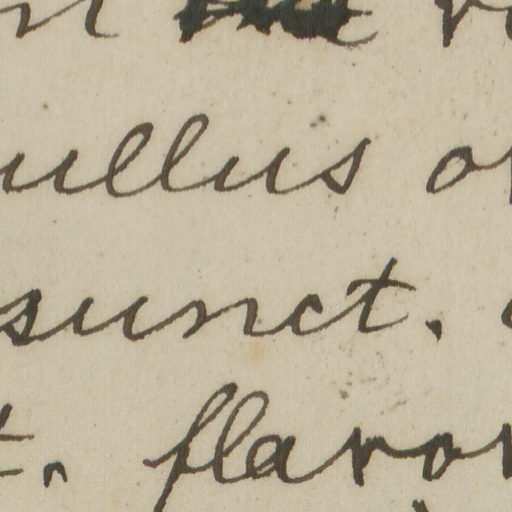 ullus o
sunct.
t. flavor